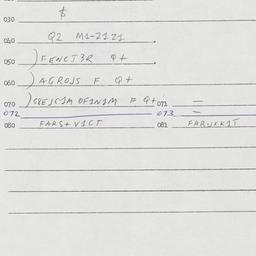 $
030
040 Q2 M1-2121
050 ) FENCT3R Q+
060 ) AGROJS F Q+
070 ) F Q+ 071 —
072 073 —
080 FARS+V1CT 081 FARUKK1T